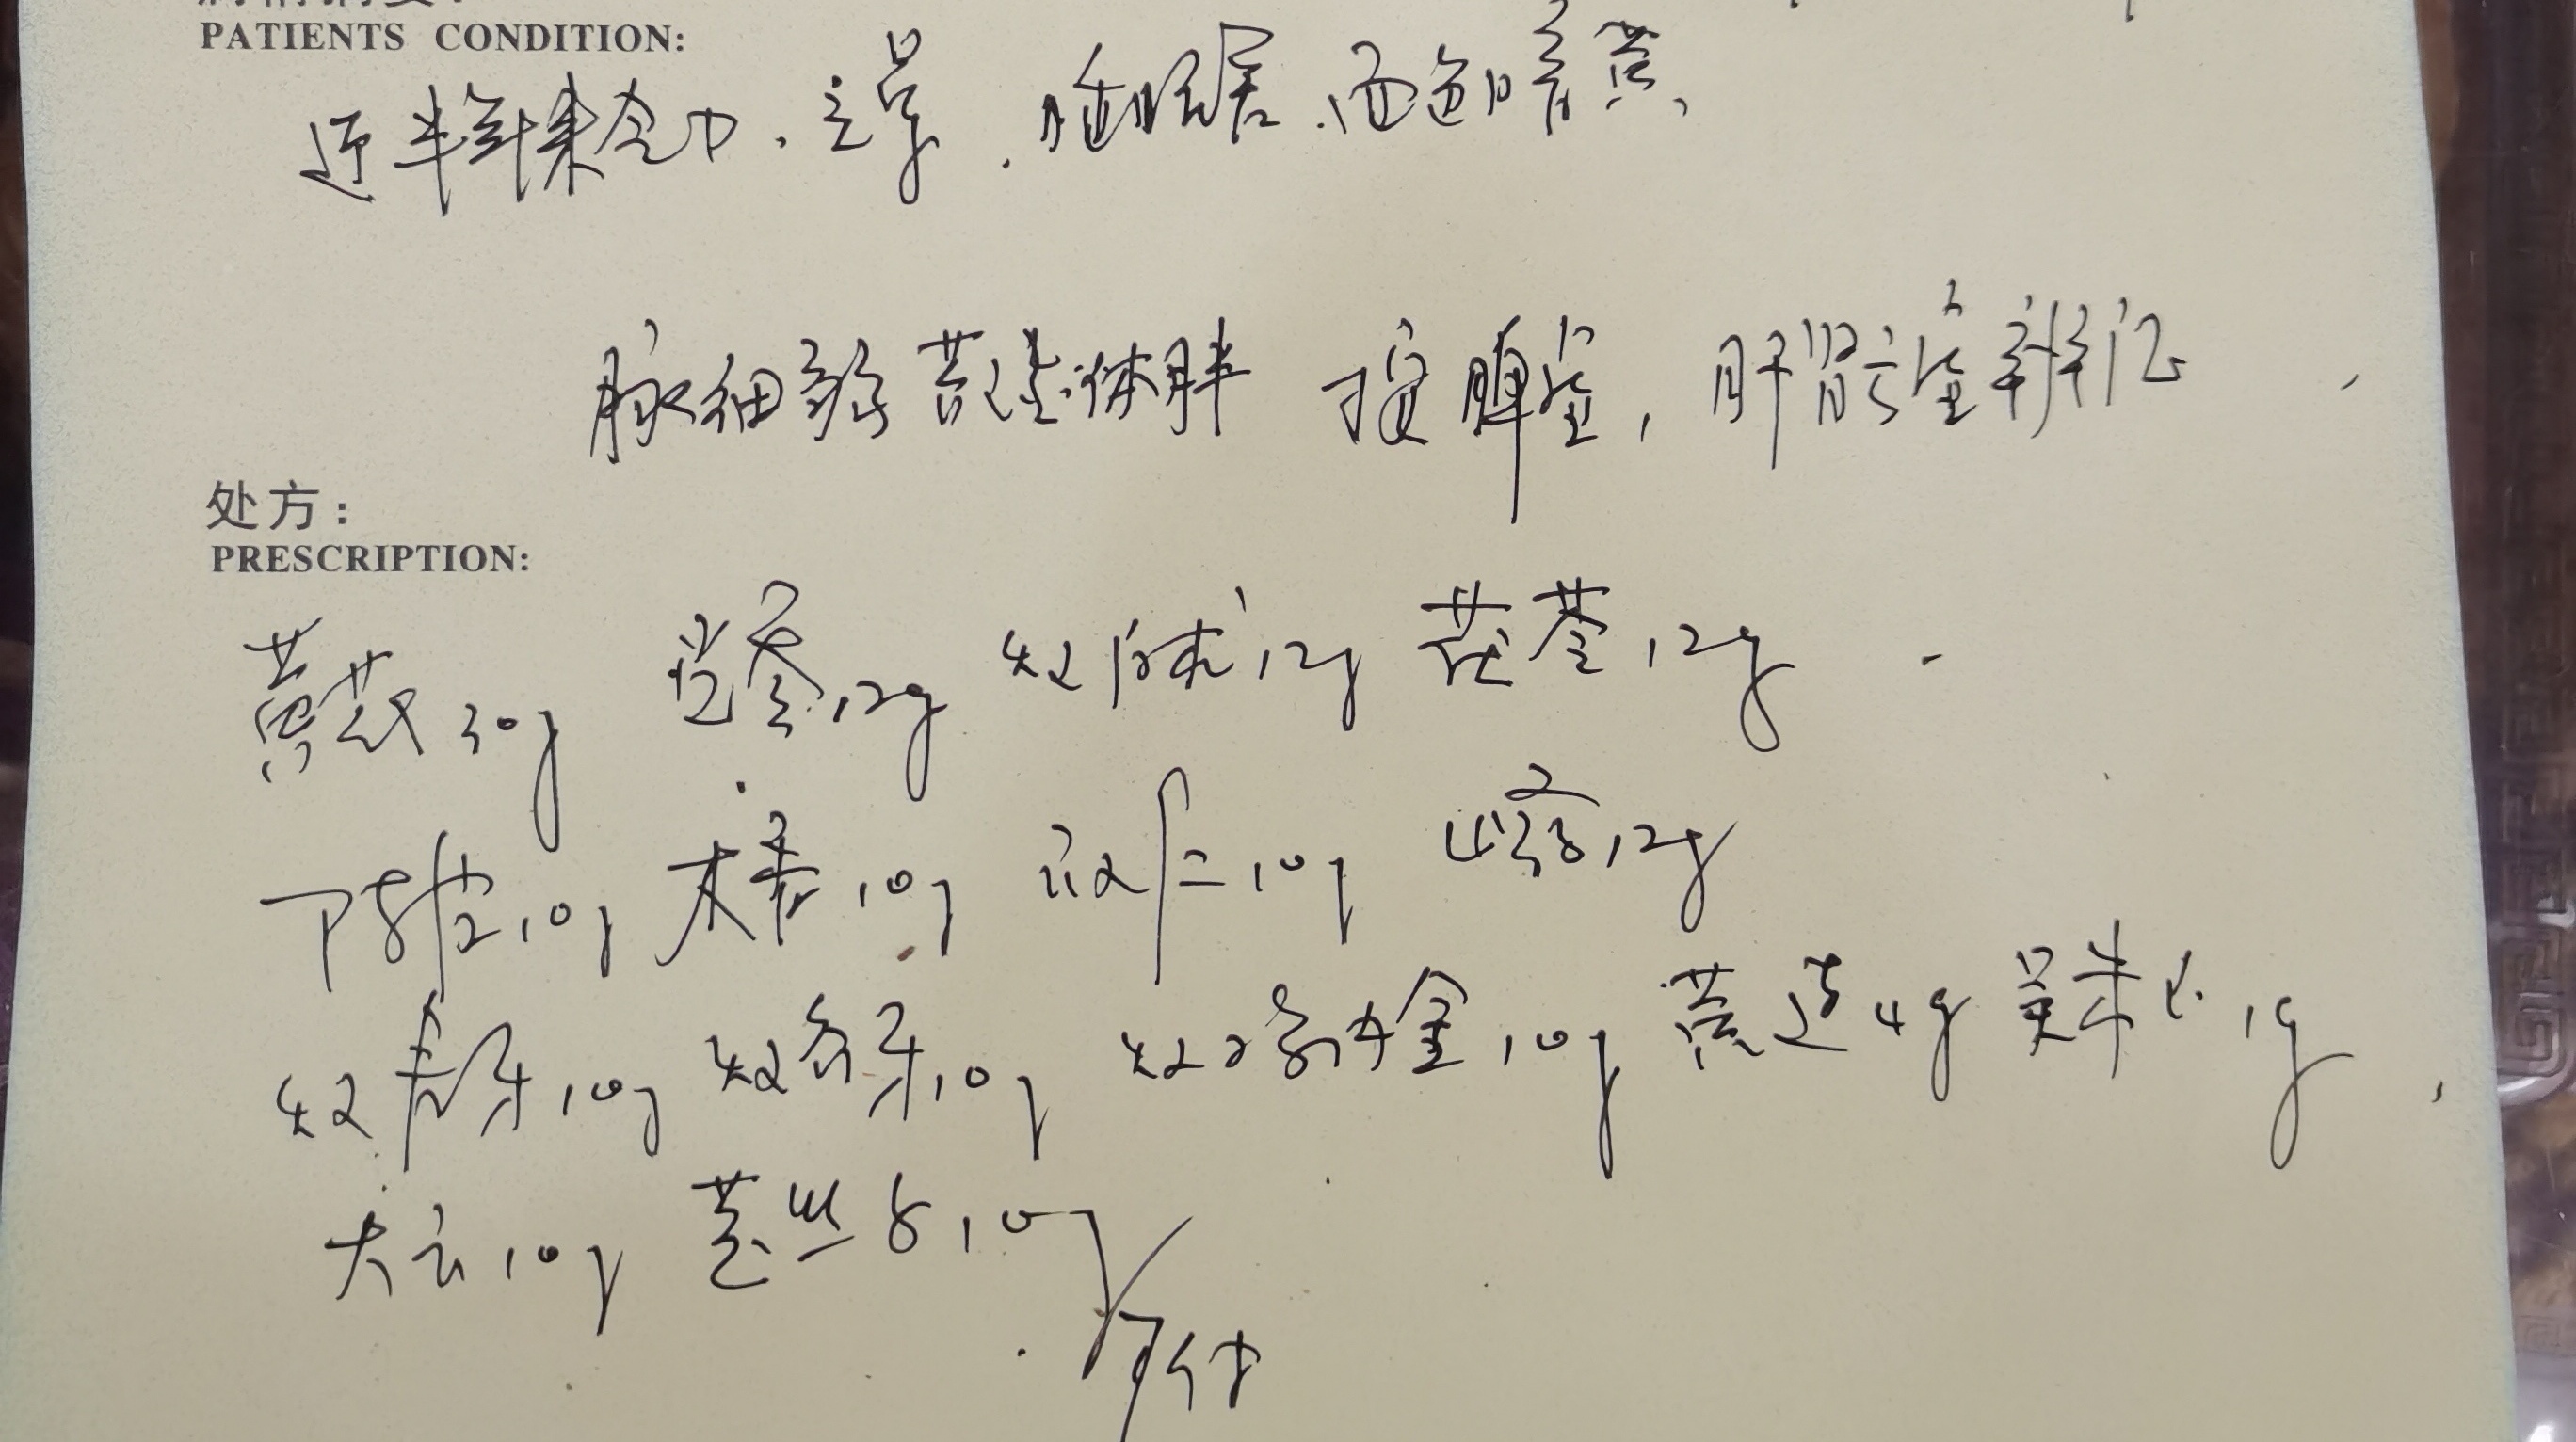 PATIENTS CONDITION:
近半年来乏力、 面色晦黄、
脉细 苔 体胖 按脾虚, 肝肾亏虚辨证
处方:
PRESCRIPTION:
黄芪30g 党参12g 炒白术12g 茯苓12g
陈皮10g 木香10g 砂仁10g 12g
炒麦芽10g 炒谷芽10g 炒鸡内金10g 黄连4g 吴茱萸1g
大云10g 菟丝子10g
7付